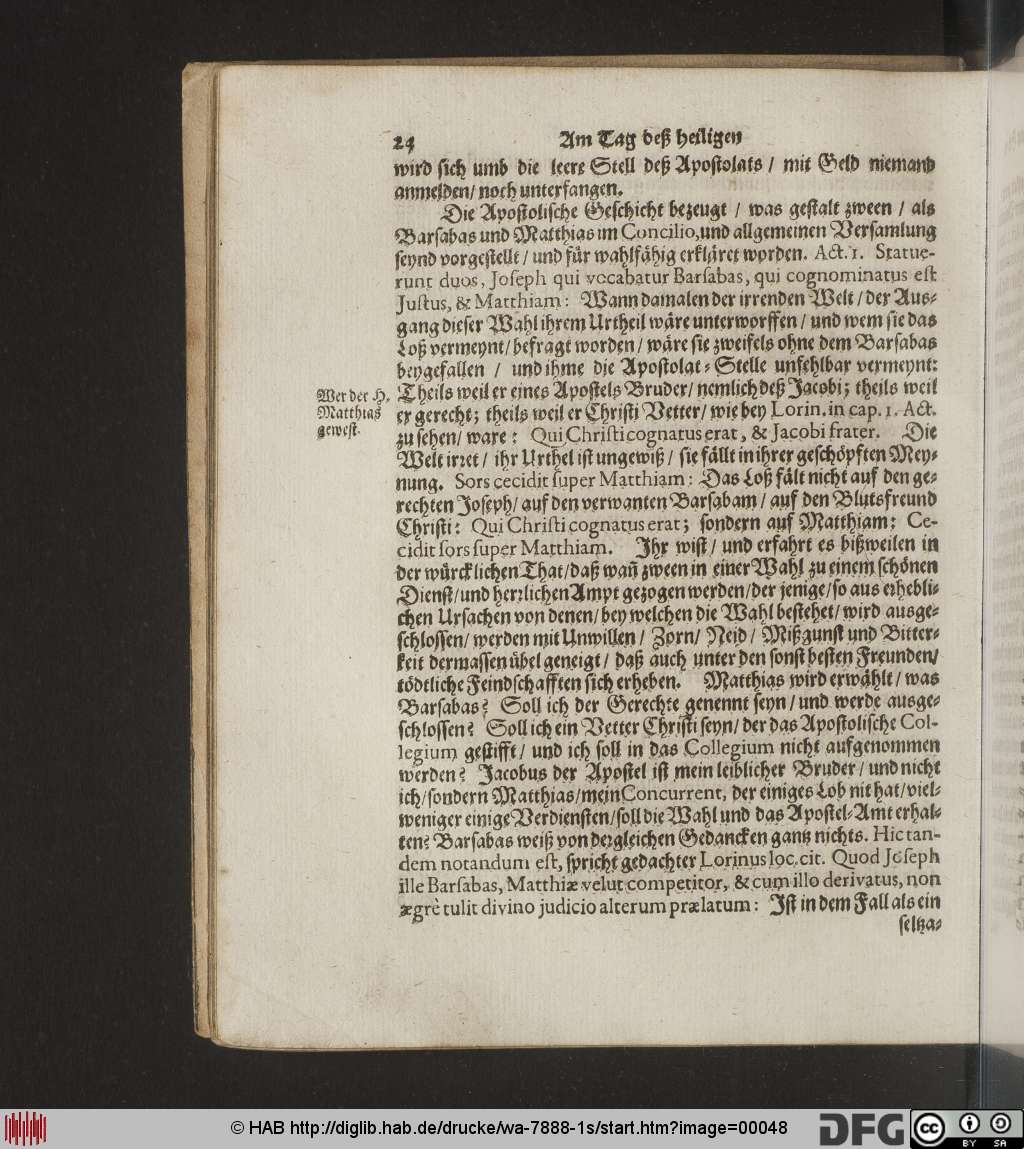 24 Am Tag deß heiligen
wird sich umb die leere Stell deß Apostolats / mit Geld niemand
anmelden/ noch unterfangen.
Die Apostolische Geschicht bezeugt / was gestalt zween / als
Barsabas und Matthias im Concilio, und allgemeinen Versamlung
seynd vorgestellt / und für wahlfähig erkläret worden. Act. 1. Statue-
runt duos, Joseph qui vocabatur Barsabas, qui cognominatus est
Justus, & Matthiam: Wann damalen der irrenden Welt / der Aus-
gang dieser Wahl ihrem Urtheil wäre unterworffen / und wem sie das
Loß vermeynt/ befragt worden / wäre sie zweifels ohne dem Barsabas
beygefallen / und ihme die Apostolat-Stelle unfehlbar vermeynt:
Wer der H.
Matthias
gewest.
Theils weil er eines Apostels Bruder/ nemlich deß Jacobi; theils weil
er gerecht; theils weil er Christi Vetter/ wie bey Lorin. in cap. 1. Act.
zu sehen/ ware: Qui Christi cognatus erat, & Jacobi frater. Die
Welt irret / ihr Urthel ist ungewiß / sie fällt in ihrer geschöpften Mey-
nung. Sors cecidit super Matthiam: Das Loß fält nicht auf den ge-
rechten Joseph/ auf den verwanten Barsabam / auf den Blutsfreund
Christi: Qui Christi cognatus erat; sondern auf Matthiam: Ce-
cidit sors super Matthiam. Ihr wist / und erfahrt es bißweilen in
der würcklichen That/ daß wañ zween in einer Wahl zu einem schönen
Dienst/ und herrlichen Ampt gezogen werden/ der jenige/ so aus erhebli-
chen Ursachen von denen/ bey welchen die Wahl bestehet/ wird ausge-
schlossen/ werden mit Unwillen / Zorn/ Neid / Mißgunst und Bitter-
keit dermassen übel geneigt / daß auch unter den sonst besten Freunden/
tödtliche Feindschafften sich erheben. Matthias wird erwählt / was
Barsabas? Soll ich der Gerechte genennt seyn / und werde ausge-
schlossen? Soll ich ein Vetter Christi seyn/ der das Apostolische Col-
legium gestifft / und ich soll in das Collegium nicht aufgenommen
werden? Jacobus der Apostel ist mein leiblicher Bruder / und nicht
ich/ sondern Matthias/ mein Concurrent, der einiges Lob nit hat/ viel-
weniger einige Verdiensten/ soll die Wahl und das Apostel-Amt erhal-
ten? Barsabas weiß von dergleichen Gedancken gantz nichts. Hic tan-
dem notandum est, spricht gedachter Lorinus loc. cit. Quod Joseph
ille Barsabas, Matthiæ velut competitor, & cum illo derivatus, non
ægrè tulit divino judicio alterum prælatum: Ist in dem Fall als ein
seltza-
© HAB http://diglib.hab.de/drucke/wa-7888-1s/start.htm?image=00048
DFG
cc BY SA